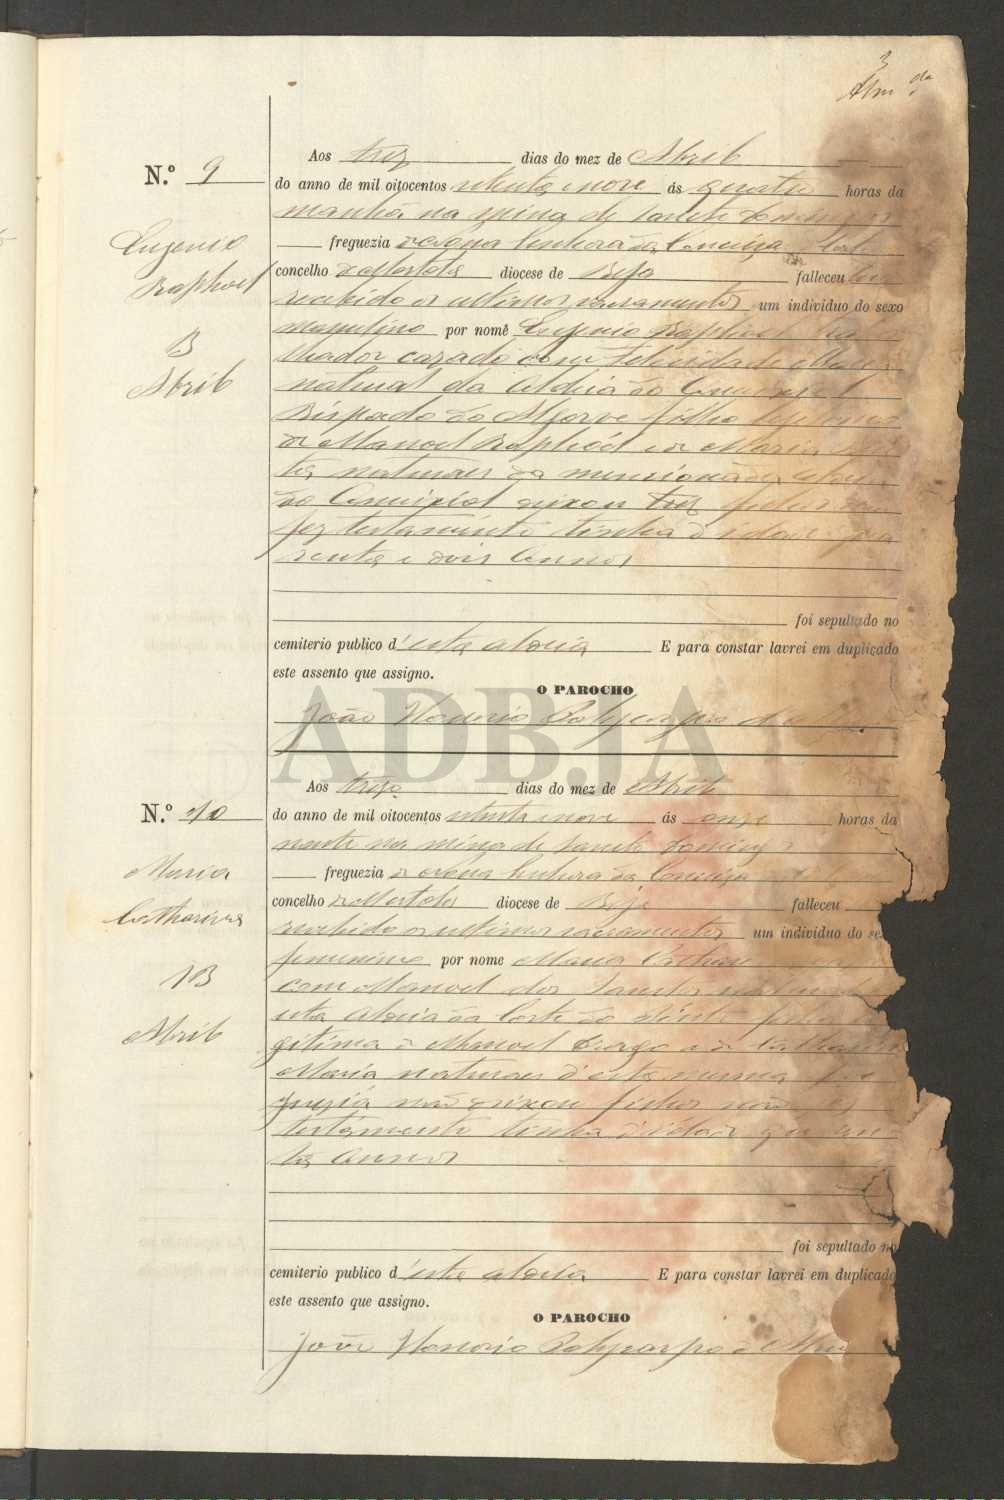 3
Alm.da
N.º 9
Eugenio
Raphael
B
Abril
Aos trez dias do mez de Abril
do anno de mil oitocentos setenta e nove ás quatro horas da
manhã na mina de Sancto Domingos
freguezia de Nossa Senhora da Conceição
concelho de Mertola diocese de Beja falleceu tendo
recebido os ultimos sacramentos um individuo do sexo
masculino por nome Eugenio Raphael
casado com
natural da Aldeia do Ameixial
Bispado do Algarve filho legitimo
de Manoel Raphael e de Maria
naturaes da mencionada aldeia
do Ameixial deixou trez filhos não
fez testamento tinha d'idade qua
renta e dois annos
foi sepultado no
cemiterio publico d'esta aldeia E para constar lavrei em duplicado
este assento que assigno.
O PAROCHO
João Honorio Polycarpo d'
ADBJA
N.º 10
Maria
Catharina
13
Abril
Aos treze dias do mez de Abril
do anno de mil oitocentos setenta e nove ás onze horas da
noute na mina de Sancto Domingos
freguezia de Nossa Senhora da Conceição
concelho de Mertola diocese de Beja falleceu
recebido os ultimos sacramentos um individuo do sexo
femenino por nome Maria Catharina
com Manoel dos Santos natural d
esta aldeia da Corte do Pinto filha le
gitima de Manoel e de Catharina
Maria naturaes d'esta mesma fre
guezia não deixou filhos não fez
testamento tinha d'idade quaren
ta annos
foi sepultado no
cemiterio publico d'esta aldeia E para constar lavrei em duplicado
este assento que assigno.
O PAROCHO
João Honorio Polycarpo d'